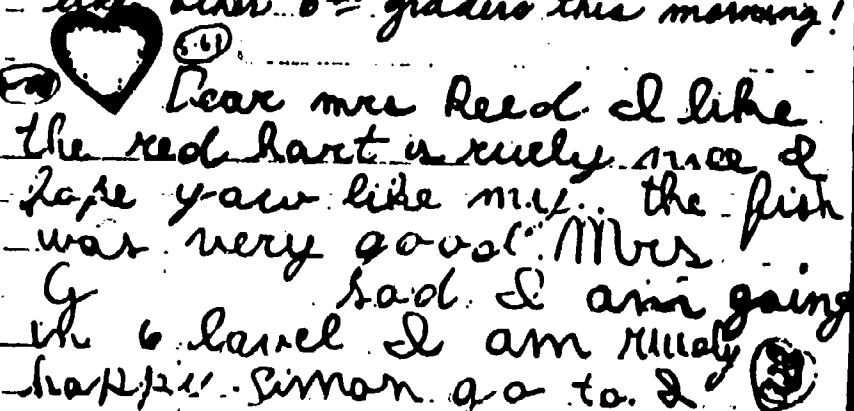 like other 6th graders this morning!
5.61
Dear mrs Reed I like
the red hart is ruely nice I
hope yaw like my.. the fish
was very good Mrs
G sad I am going
in 6 lavel I am ruealy
happy. Simon go to I